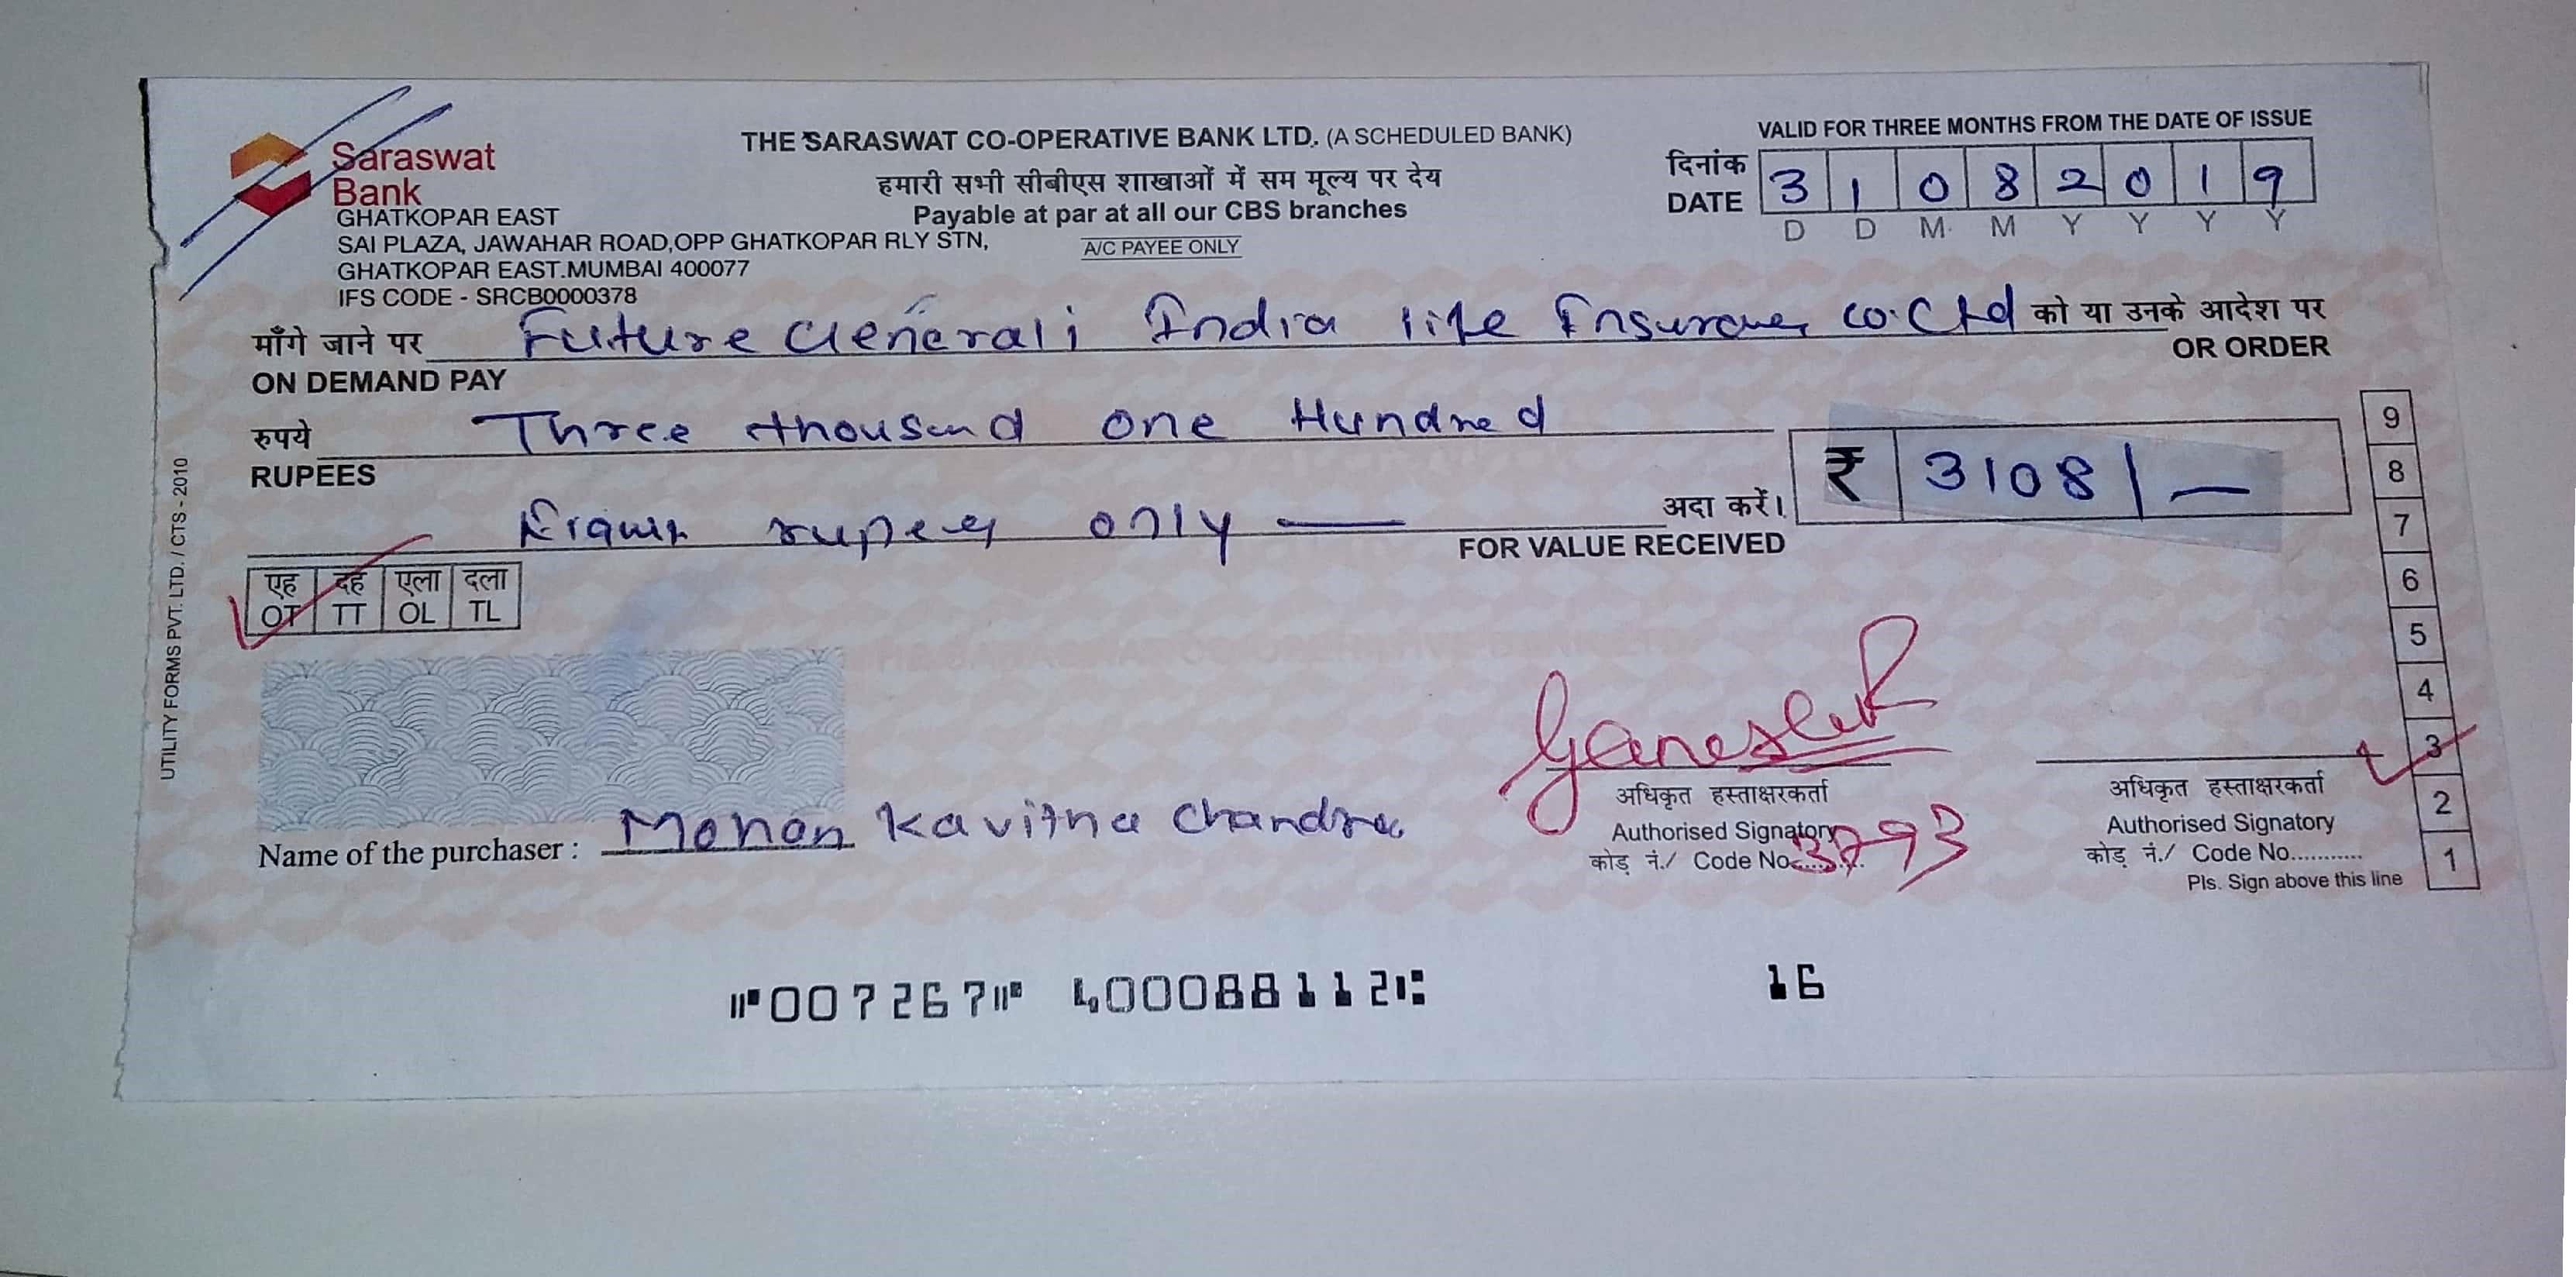 Saraswat
Bank
GHATKOPAR EAST
SAI PLAZA, JAWAHAR ROAD,OPP GHATKOPAR RLY STN,
GHATKOPAR EAST.MUMBAI 400077
IFS CODE - SRCB0000378
THE SARASWAT CO-OPERATIVE BANK LTD. (A SCHEDULED BANK)
हमारी सभी सीबीएस शाखाओं में सम मूल्य पर देय
Payable at par at all our CBS branches
A/C PAYEE ONLY
VALID FOR THREE MONTHS FROM THE DATE OF ISSUE
दिनांक
DATE 3 1 0 8 2 0 1 9
D D M M Y Y Y Y
माँगे जाने पर Future Generali India life Insurance co. Ltd को या उनके आदेश पर
ON DEMAND PAY OR ORDER
रुपये Three thousand one Hundred
RUPEES
rupees only — अदा करें।
FOR VALUE RECEIVED
₹ 3108/—
एह दह एला दला
OT TT OL TL
UTILITY FORMS PVT. LTD. / CTS - 2010
9
8
7
6
5
4
3
2
1
Ganesh
अधिकृत हस्ताक्षरकर्ता
Authorised Signatory
कोड़ नं./ Code No. 3793
अधिकृत हस्ताक्षरकर्ता
Authorised Signatory
कोड़ नं./ Code No...........
Pls. Sign above this line
Name of the purchaser : Mohan Kavitha Chandra
⑈007267⑈ 400088112⑆ 16